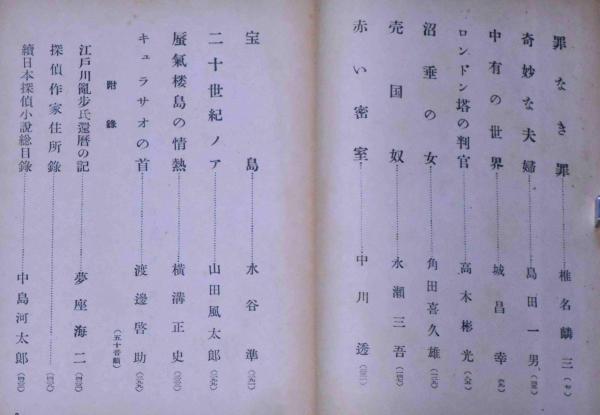 罪なき罪 椎名麟三
奇妙な夫婦 島田一男
中有の世界 城昌幸
ロンドン塔の判官 高木彬光
沼垂の女 角田喜久雄
売国奴 永瀬三吾
赤い密室 中川透
宝島 水谷準
二十世紀ノア 山田風太郎
蜃氣楼島の情熱 横溝正史
キュラサオの首 渡邊啓助
附錄 (五十音順)
江戸川亂歩氏還暦の記 夢座海二
探偵作家住所錄
續日本探偵小說総目錄 中島河太郎